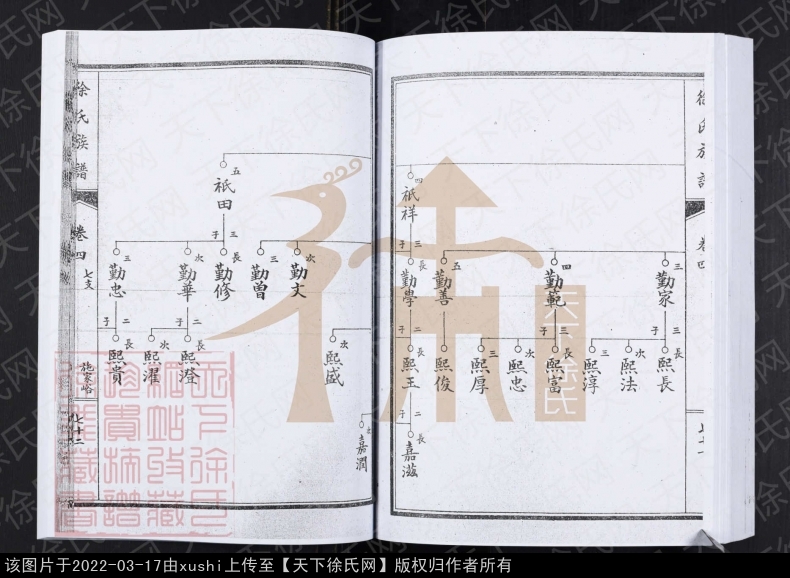 徐氏族譜
卷四
四
祇祥
三子
三
勤家
四
勤範
五
勤善
長
勤學
三子
長
熙長
次
熙法
三
熙淳
三子
長
熙富
次
熙忠
三
熙厚
熙俊
二子
長
熙王
二子
長
嘉滋
次
嘉潤
次
熙盛
次
勤文
三
勤曾
五
祇田
三子
長
勤修
次
勤華
三
勤忠
二子
長
熙澄
次
熙濯
二子
長
熙貴
徐氏族譜
卷四
七支
施家峪
七十二
天下徐氏
天下徐氏网
该图片于2022-03-17由xushi上传至【天下徐氏网】版权归作者所有